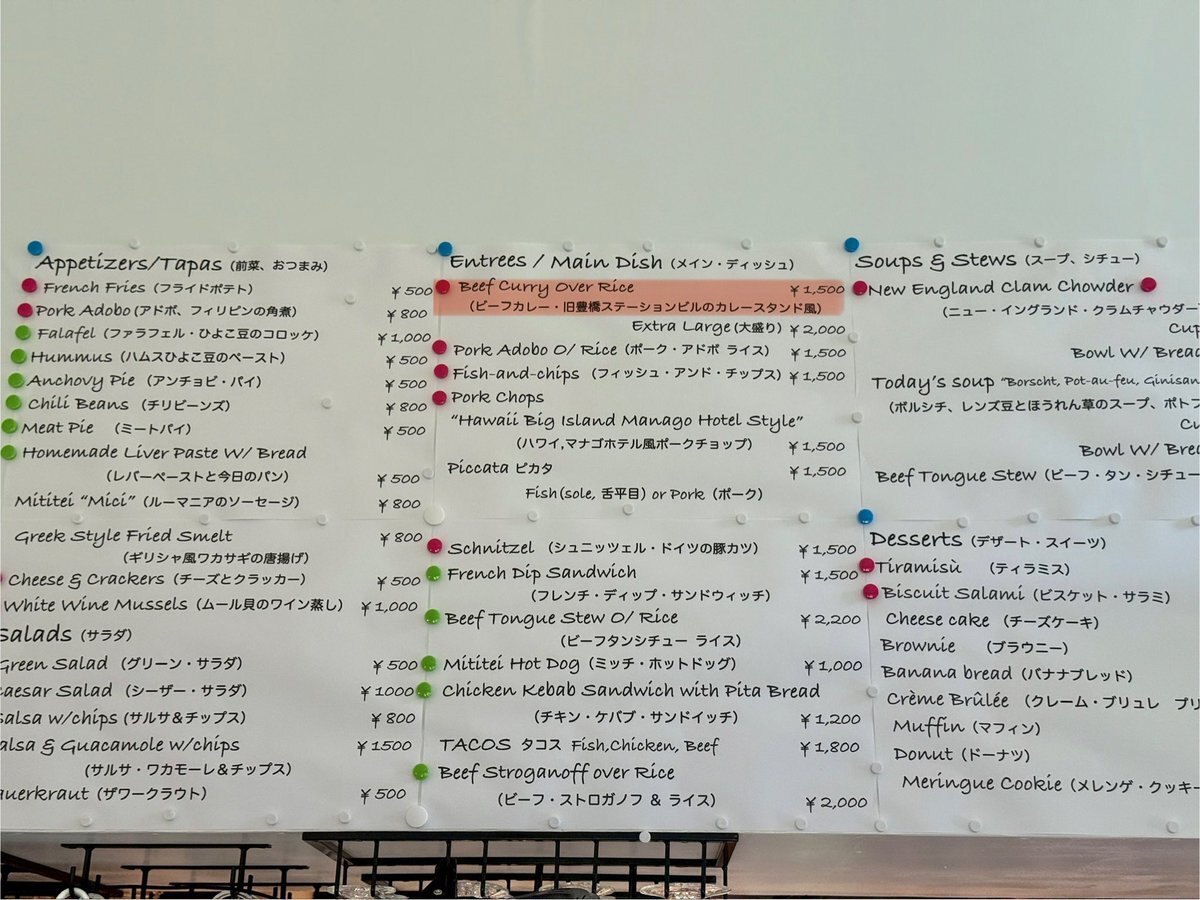 Appetizers/Tapas (前菜、おつまみ)
French Fries (フライドポテト) ¥500
Pork Adobo (アドボ、フィリピンの角煮) ¥800
Falafel (ファラフェル・ひよこ豆のコロッケ) ¥1,000
Hummus (ハムスひよこ豆のペースト) ¥500
Anchovy Pie (アンチョビ・パイ) ¥500
Chili Beans (チリビーンズ) ¥800
Meat Pie (ミートパイ) ¥500
Homemade Liver Paste W/ Bread
(レバーペーストと今日のパン) ¥500
Mititei "Mici" (ルーマニアのソーセージ) ¥800
Greek Style Fried Smelt ¥800
(ギリシャ風ワカサギの唐揚げ)
Cheese & Crackers (チーズとクラッカー) ¥500
White Wine Mussels (ムール貝のワイン蒸し) ¥1,000
Salads (サラダ)
Green Salad (グリーン・サラダ) ¥500
Caesar Salad (シーザー・サラダ) ¥1000
Salsa w/chips (サルサ&チップス) ¥800
alsa & Guacamole w/chips ¥1500
(サルサ・ワカモーレ&チップス)
auerkraut (ザワークラウト) ¥500
Entrees / Main Dish (メイン・ディッシュ)
Beef Curry Over Rice ¥1,500
(ビーフカレー・旧豊橋ステーションビルのカレースタンド風)
Extra Large (大盛り) ¥2,000
Pork Adobo O/ Rice (ポーク・アドボ ライス) ¥1,500
Fish-and-chips (フィッシュ・アンド・チップス) ¥1,500
Pork Chops
"Hawaii Big Island Manago Hotel Style"
(ハワイ,マナゴホテル風ポークチョップ) ¥1,500
Piccata ピカタ ¥1,500
Fish (sole, 舌平目) or Pork (ポーク)
Schnitzel (シュニッツェル・ドイツの豚カツ) ¥1,500
French Dip Sandwich ¥1,500
(フレンチ・ディップ・サンドウィッチ)
Beef Tongue Stew O/ Rice ¥2,200
(ビーフタンシチュー ライス)
Mititei Hot Dog (ミッチ・ホットドッグ) ¥1,000
Chicken Kebab Sandwich with Pita Bread
(チキン・ケバブ・サンドイッチ) ¥1,200
TACOS タコス Fish,Chicken, Beef ¥1,800
Beef Stroganoff over Rice
(ビーフ・ストロガノフ & ライス) ¥2,000
Soups & Stews (スープ、シチュー)
New England Clam Chowder
(ニュー・イングランド・クラムチャウダー
Cup
Bowl W/ Bread
Today's soup "Borscht, Pot-au-feu, Ginisan
(ボルシチ、レンズ豆とほうれん草のスープ、ポトフ
Cu
Bowl W/ Brea
Beef Tongue Stew (ビーフ・タン・シチュー
Desserts (デザート・スイーツ)
Tiramisù (ティラミス)
Biscuit Salami (ビスケット・サラミ)
Cheese cake (チーズケーキ)
Brownie (ブラウニー)
Banana bread (バナナブレッド)
Crème Brûlée (クレーム・ブリュレ プリ
Muffin (マフィン)
Donut (ドーナツ)
Meringue Cookie (メレンゲ・クッキー